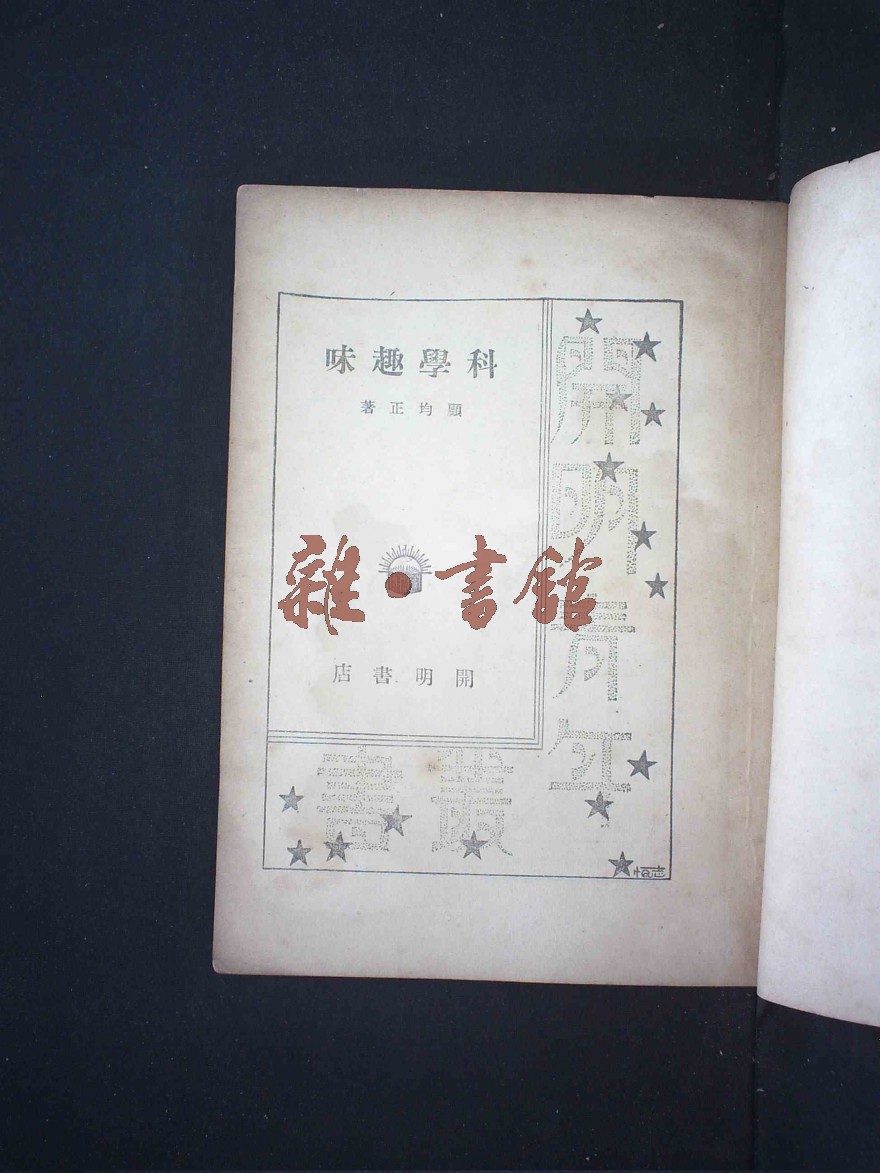 科學趣味
顧均正著
開明書店
開明青年
叢書
雜·書館